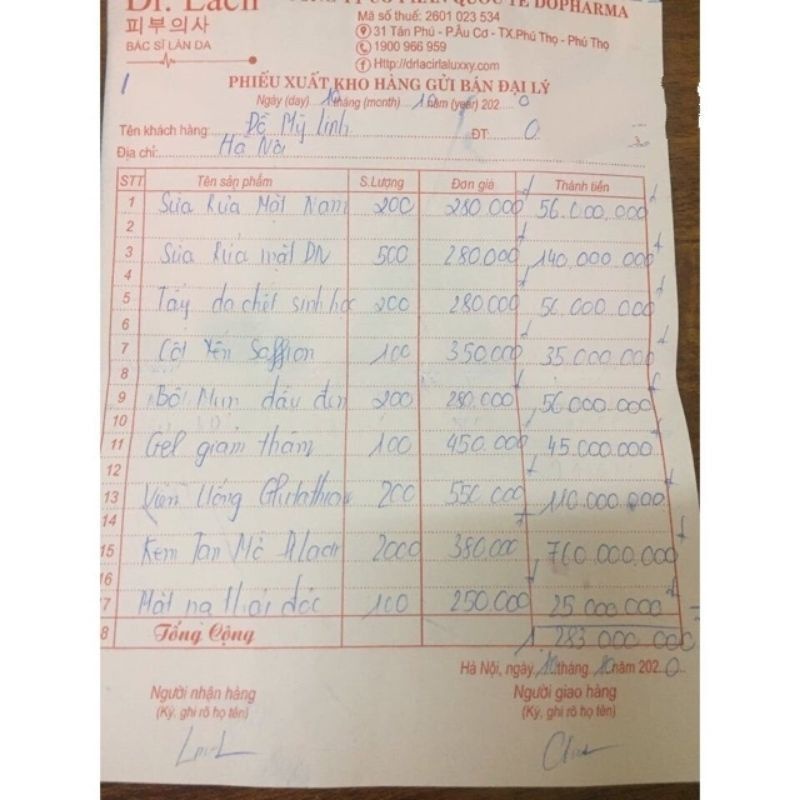 Dr. Lacir
CÔNG TY CỔ PHẦN QUỐC TẾ DOPHARMA
피부의사
BÁC SĨ LÀN DA
Mã số thuế: 2601 023 534
31 Tân Phú - P.Âu Cơ - TX.Phú Thọ - Phú Thọ
1900 966 959
Http://drlacirlaluxxy.com
PHIẾU XUẤT KHO HÀNG GỬI BÁN ĐẠI LÝ
Ngày (day) 10 tháng (month) 10 năm (year) 2020
Tên khách hàng: Đỗ Mỹ Linh ĐT: 0
Địa chỉ: Hà Nội
STT Tên sản phẩm S.Lượng Đơn giá Thành tiền
1 Sữa Rửa Mặt Nam 200 280.000đ 56.000.000đ
2
3 Sữa Rửa mặt DN 500 280.000đ 140.000.000đ
4
5 Tẩy da chết sinh học 200 280.000đ 56.000.000đ
6
7 Cốt Yến Saffron 100 350.000đ 35.000.000đ
8
9 Bột Mụn đầu đen 200 280.000đ 56.000.000đ
10
11 Gel giảm thâm 100 450.000đ 45.000.000đ
12
13 Viên Uống Glutathion 200 550.000đ 110.000.000đ
14
15 Kem Tan Mỡ Drlacir 2000 380.000đ 760.000.000đ
16
17 Mặt nạ thải độc 100 250.000đ 25.000.000đ
18 Tổng Cộng 1.283.000.000
Hà Nội, ngày 10 tháng 10 năm 2020
Người nhận hàng Người giao hàng
(Ký, ghi rõ họ tên) (Ký, ghi rõ họ tên)